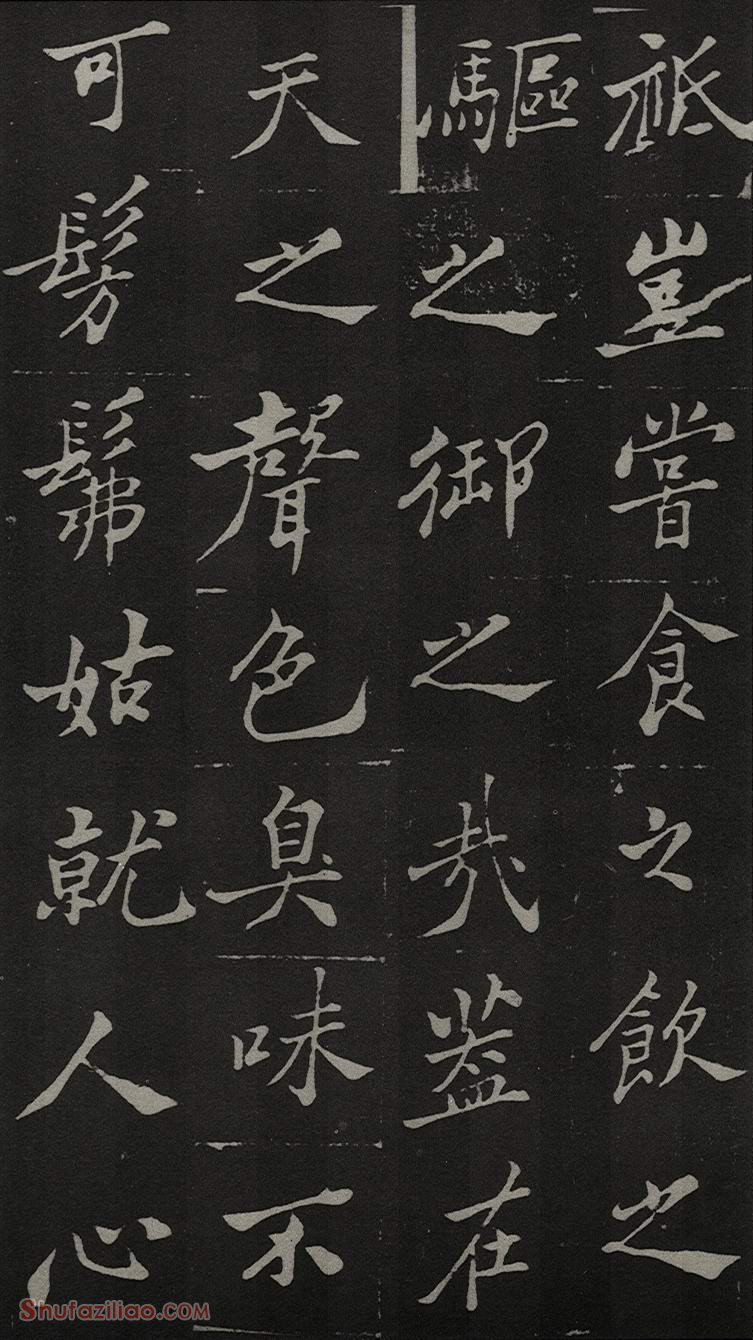 祗豈嘗食之飲之
驅之御之哉盖在
天之聲色臭味不
可髣髴姑就人心
Shufaziliao.com